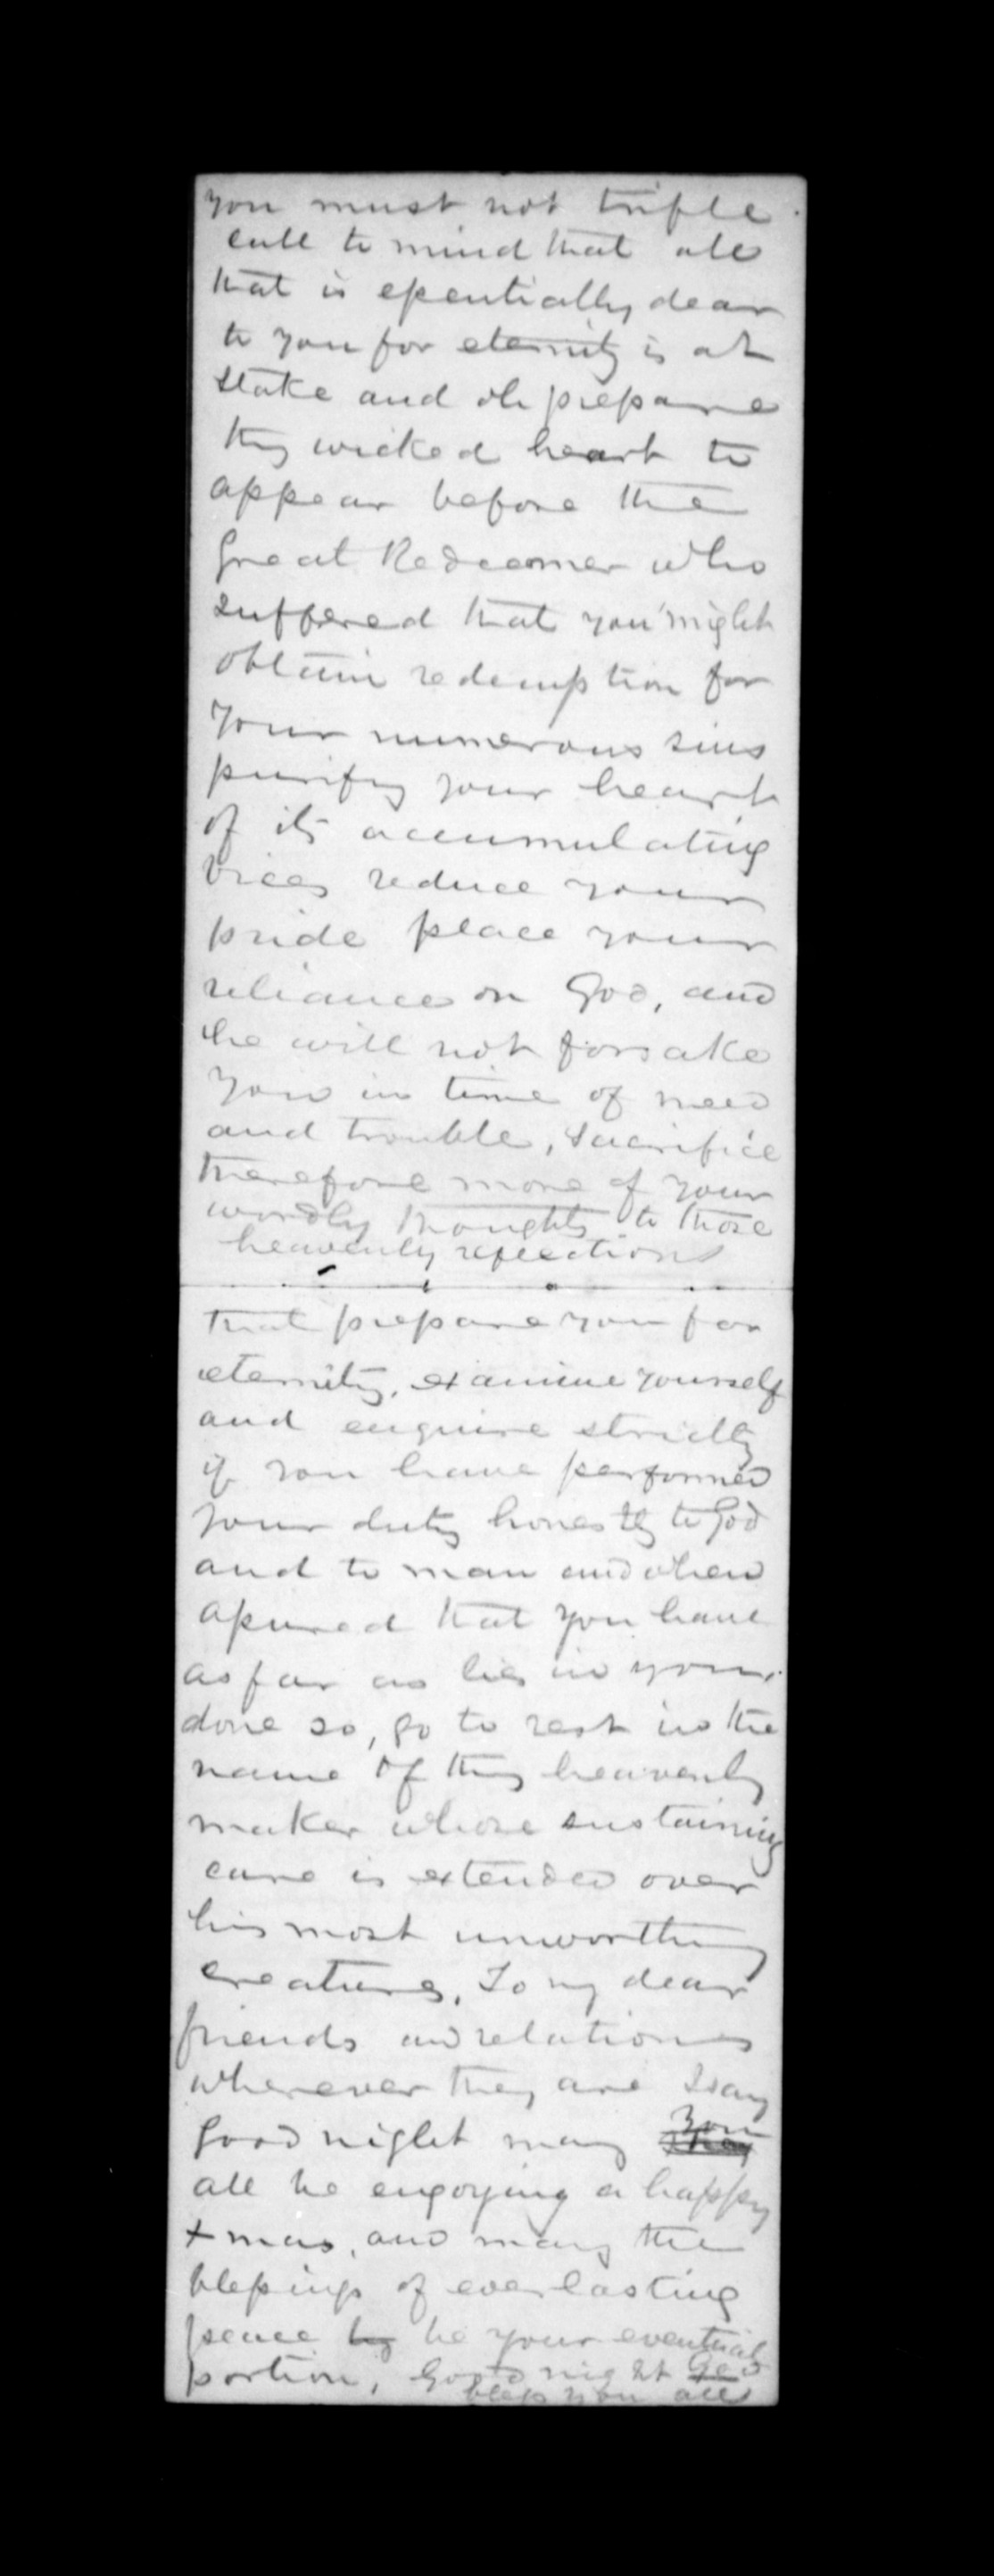 you must not trifle.
call to mind that all
that is essentially dear
to you for eternity is at
stake and oh prepare
thy wicked heart to
appear before the
Great Redeemer who
suffered that you might
obtain redemption for
your numerous sins
purify your heart
of its accumulating
vices reduce your
pride place your
reliance on God, and
he will not forsake
you in time of need
and trouble, sacrifice
therefore more of your
wordly thoughts to those
heavenly reflections
that prepare you for
eternity, examine yourself
and enquire strictly
if you have performed
your duty honestly to God
and to man and when
assured that you have
as far as lies in your
done so, go to rest in the
name of thy heavenly
maker whose sustaining
care is extended over
his most unworthy
creatures, To my dear
friends and relations
wherever they are I say
Good night may you
all be enjoying a happy
Xmas, and may the
blessings of everlasting
peace by be your eventual
portion, Good night God
bless you all